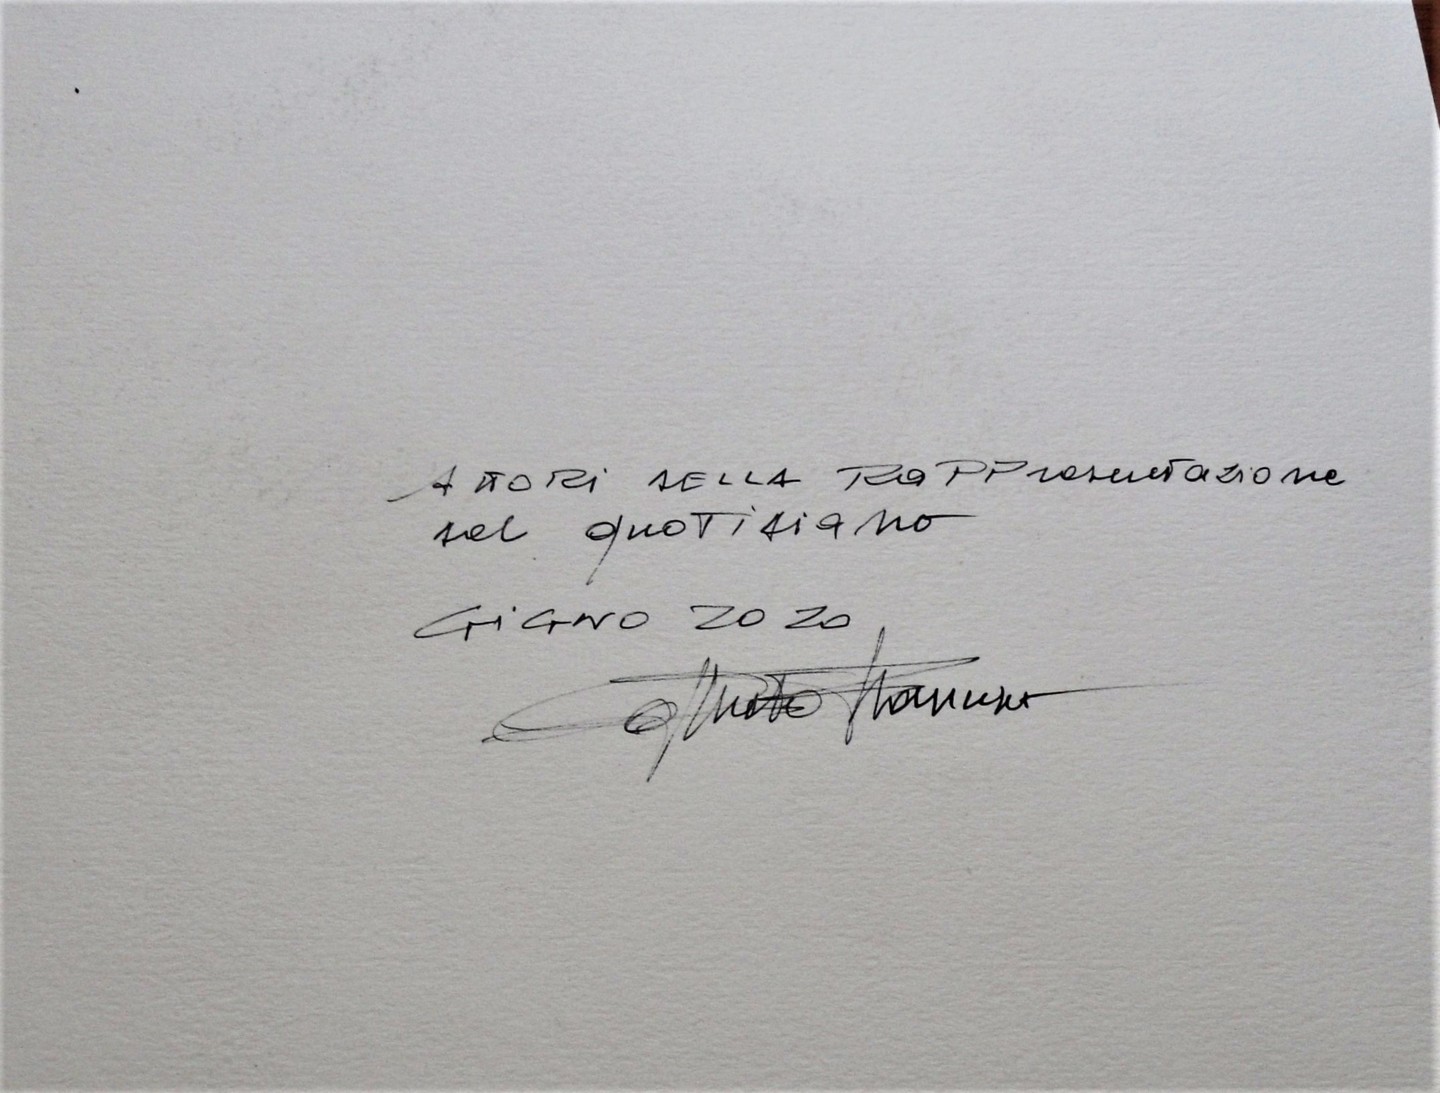 ATTORI DELLA RaPPresentazione
del quoTidiano
GiGNO 2020